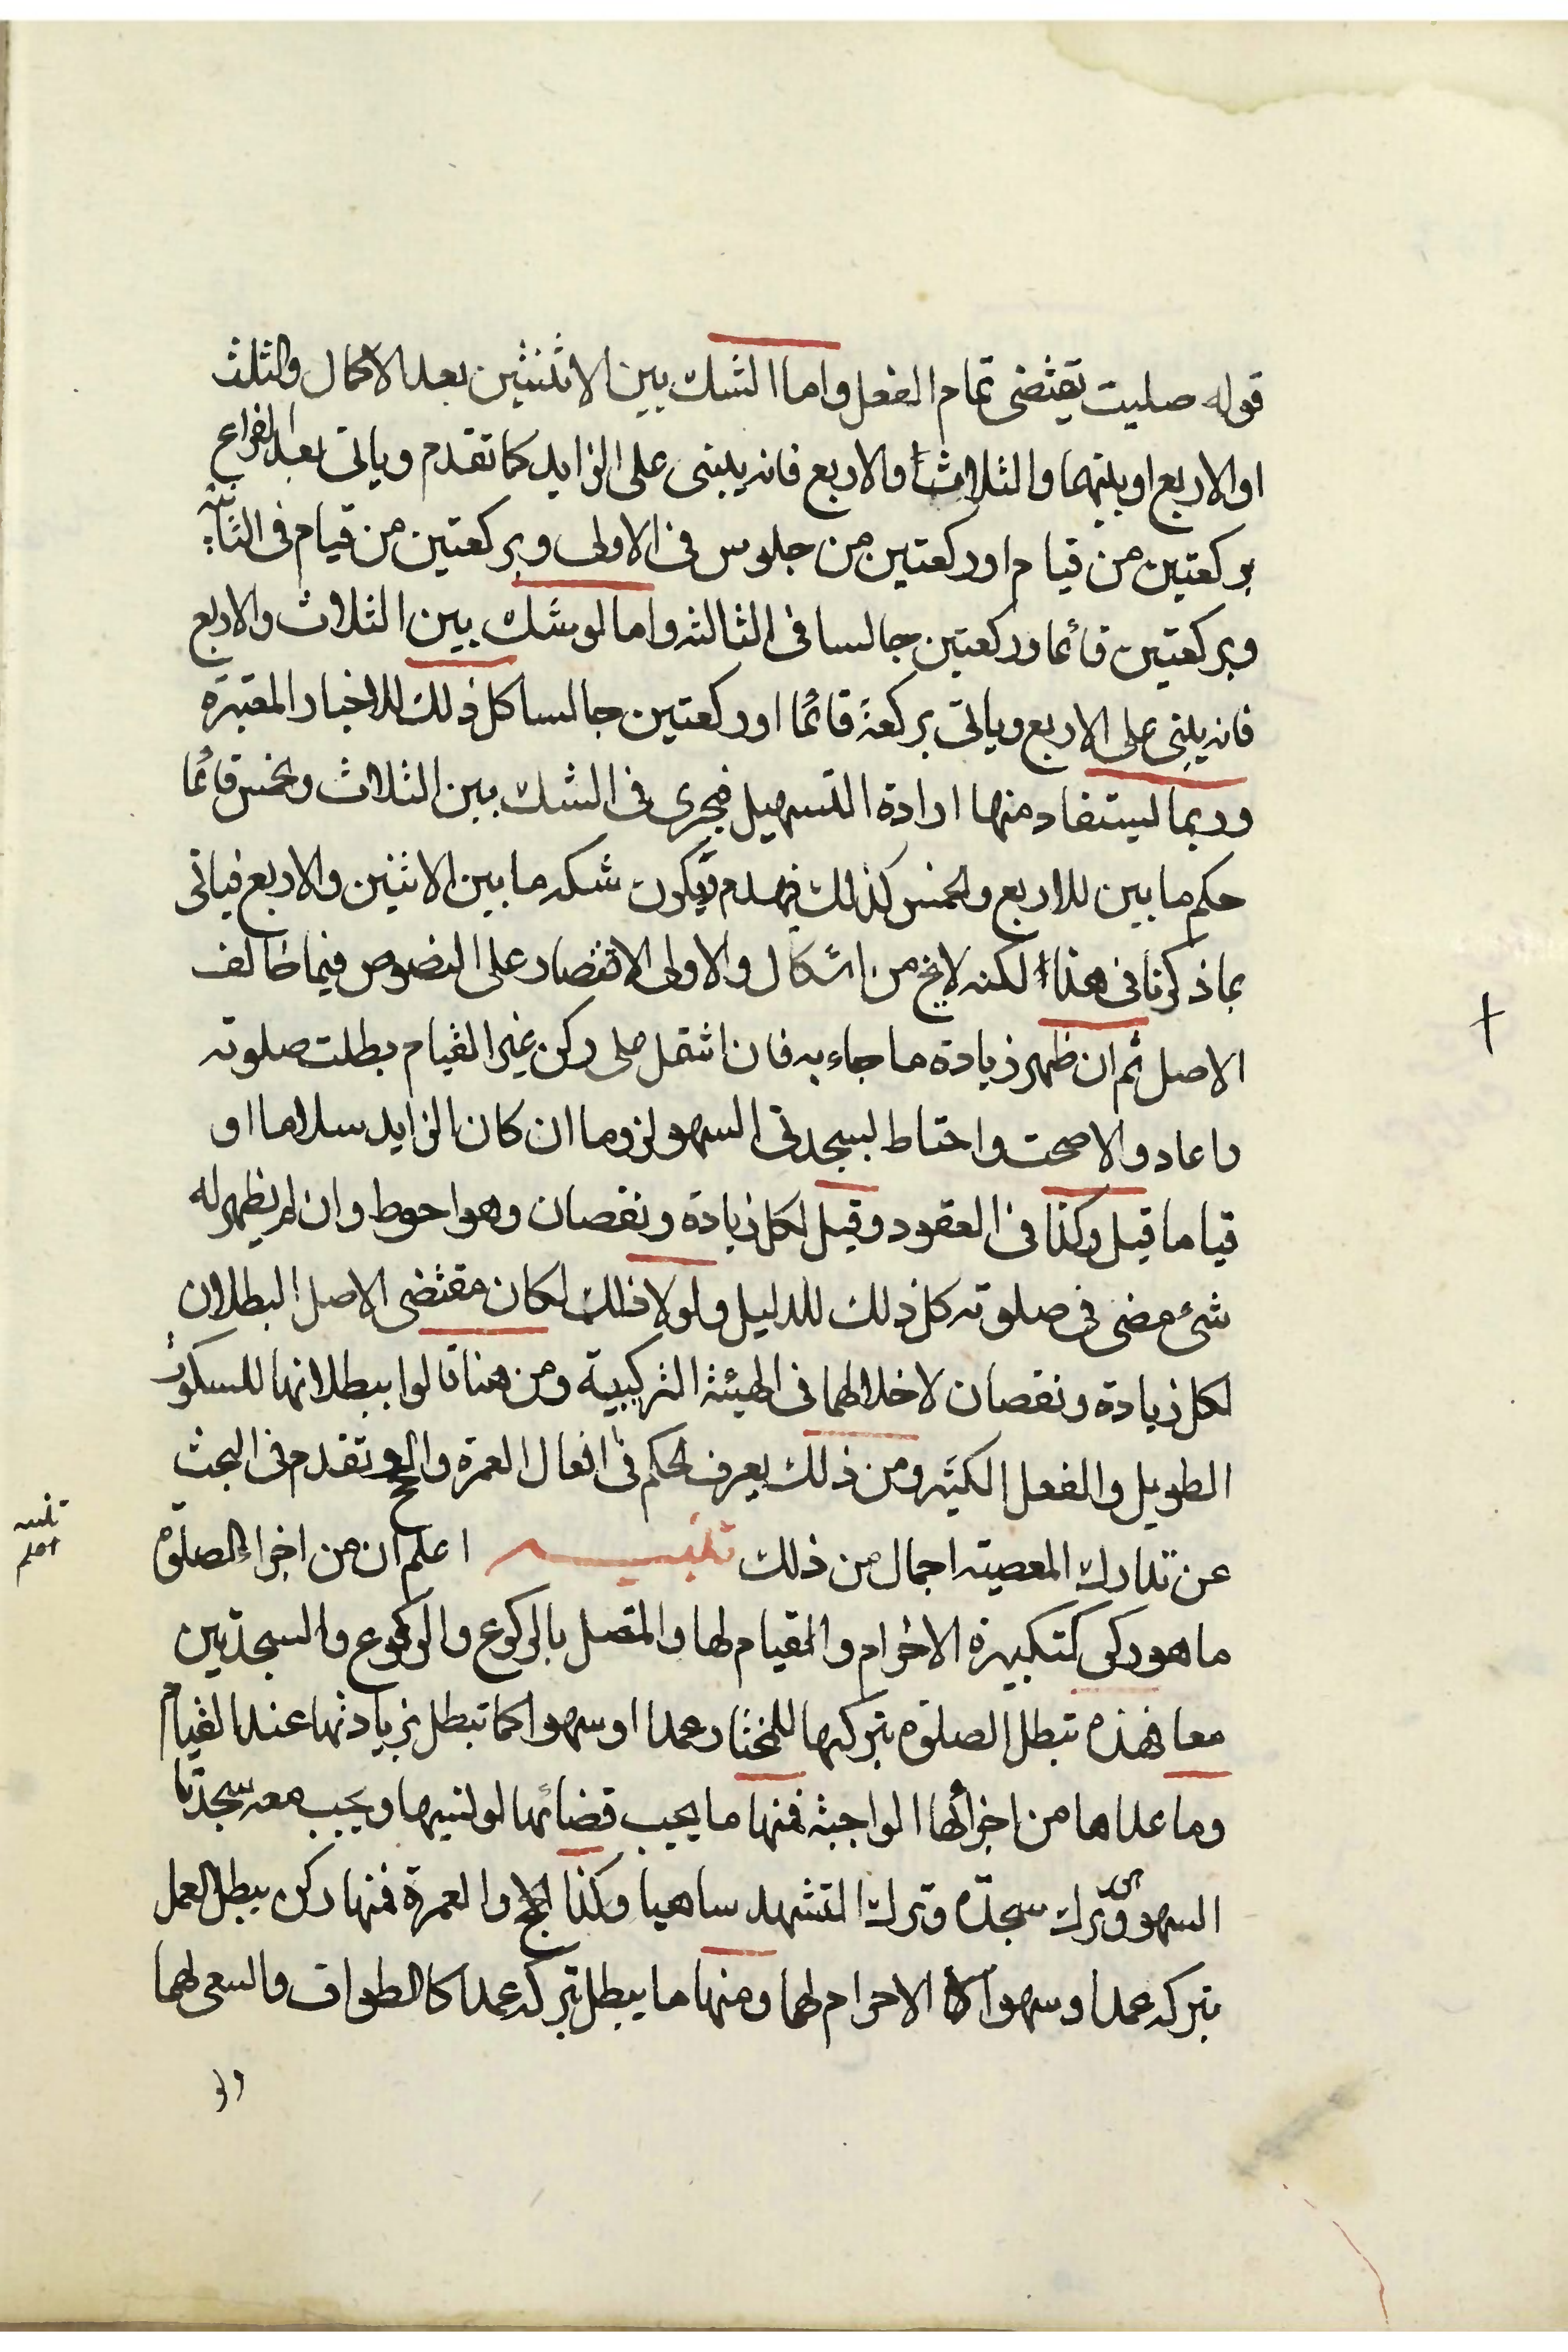 قوله صليت يقتضى تمام الفعل واما الشك بين الاثنتين بعد الاكمال والثلث
او الاربع او بينهما والثلاث والاربع فانه يبنى على الزايد كما تقدم وياتى بعد الفراغ
بركعتين من قيام او ركعتين من جلوس فى الاولى وبركعتين من قيام فى الثانيه
وبركعتين قائما وركعتين جالسا فى الثالثه واما لو شك بين الثلاث والاربع
فانه يبنى على الاربع وياتى بركعة قائما او ركعتين جالسا كل ذلك للاخبار المعتبرة
وربما يستفاد منها ارادة التسهيل فيجرى فى الشك بين الثلاث والخمس قائما
حكم ما بين الاربع والخمس كذلك فيهدم ويكون شكه ما بين الاثنين والاربع فياتى
بما ذكرنا فى هذا لكنه لا يخ من اشكال والاولى الاقتصار على النصوص فيما خالف
الاصل ثم ان ظهر زيادة ما جاء به فان اشتمل على ركن غير القيام بطلت صلوته
واعاد والا صحت واحتاط بسجدتى السهو لزوما ان كان الزايد سلاما او
قياما قيل وكذا فى العقود وقيل لكل زيادة ونقصان وهو احوط وان لم يظهر له
شئ مضى فى صلوته كل ذلك للدليل ولولا ذلك لكان مقتضى الاصل البطلان
لكل زيادة ونقصان لاخلالهما فى الهيئة التركيبية ومن هنا قالوا ببطلانها للسكوت
الطويل والفعل الكثير ومن ذلك يعرف الحكم فى افعال العمرة والحج وتقدم فى البحث
عن تدارك المعصيته اجمال من ذلك تنبيه اعلم ان من اجزاء الصلوة
ما هو ركن كتكبيرة الاحرام والقيام لها والمتصل بالركوع والركوع والسجدتين
معا فهذه تبطل الصلوة بتركها للمختار عمدا او سهوا كما تبطل بزيادتها عند القيام
وما عداها من اجزائها الواجبة فمنها ما يجب قضائها لو نسيها ويجب معه سجدتا
السهو وترك سجدة وترك التشهد ساهيا وكذا الحج والعمرة فمنها ركن يبطل العمل
بتركه عمدا وسهوا الاحرام لهما ومنها ما يبطل بتركه عمدا كالطواف والسعى لهما
تنبيه
اعلم